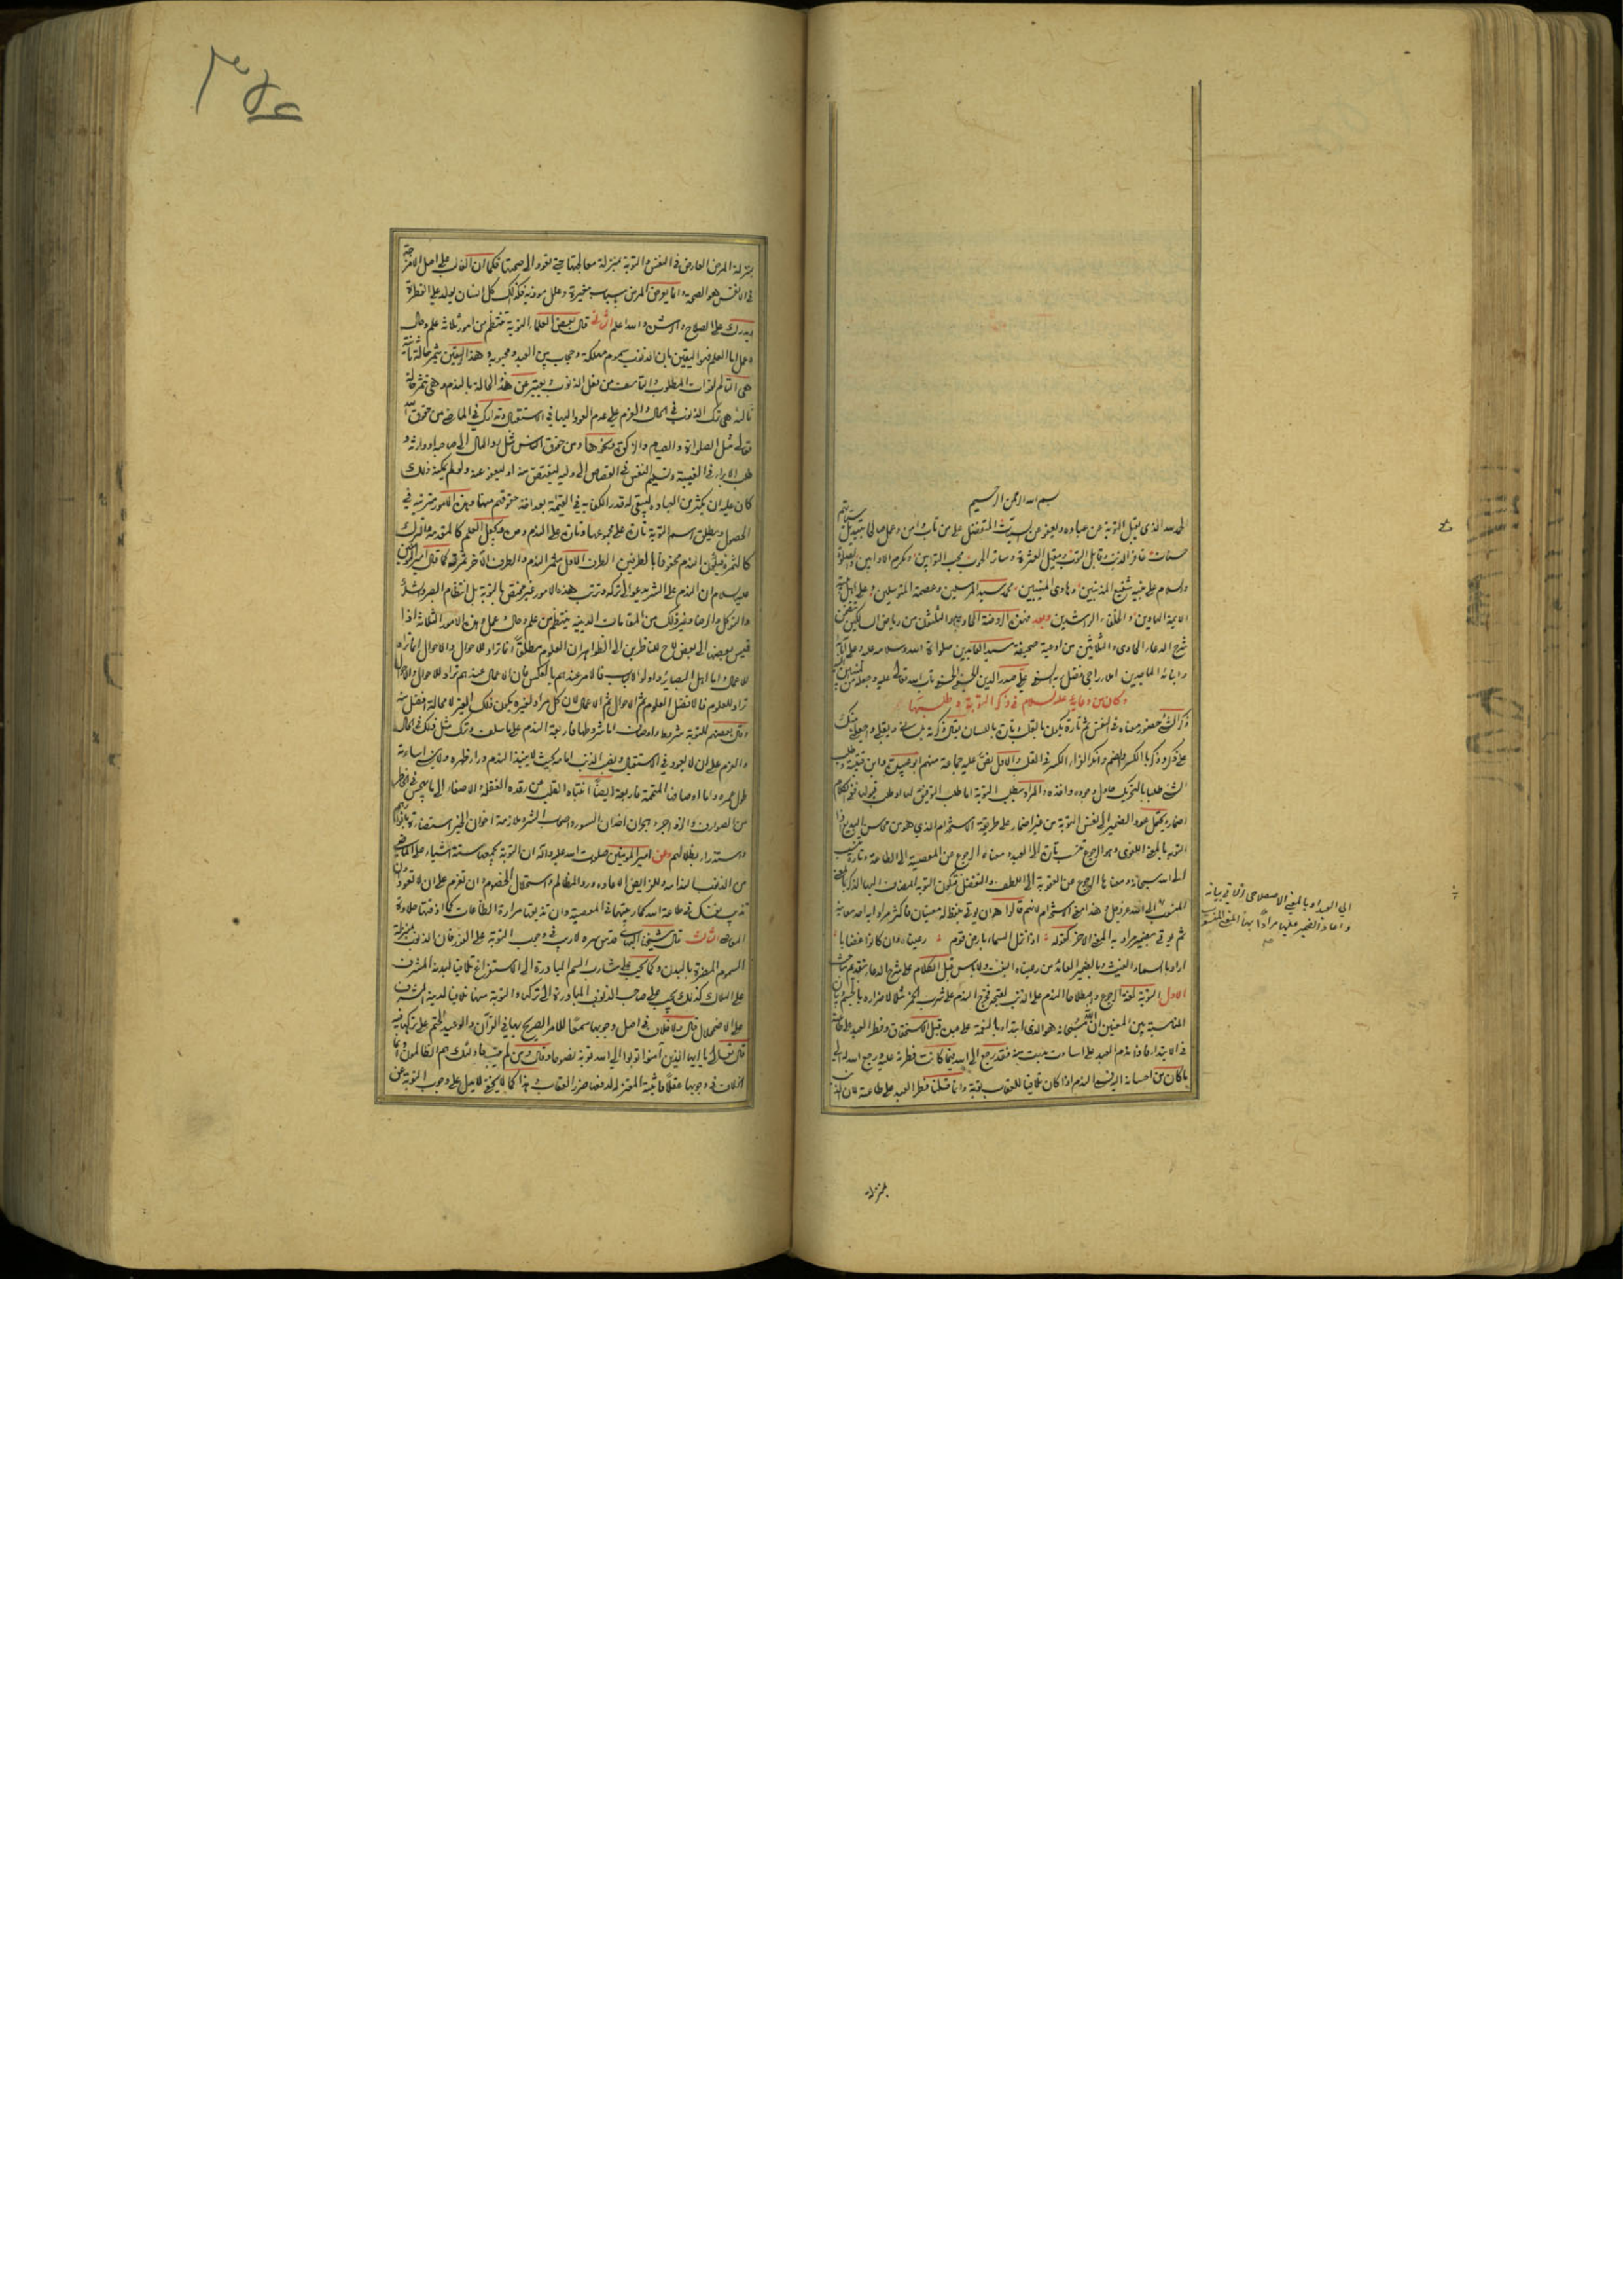 بسم الله الرحمن الرحيم
الحمد لله الذى يقبل التوبة عن عباده ويعفو عن السيئات المتفضل على من تاب وآمن وعمل صالحا بتبديل سيئاته
حسنات غافر الذنب وقابل التوب ومقيل العثرة وساتر الحوب محب التوابين ومكرم الاوابين والصلوة
والسلام على نبيه شفيع المذنبين وهادى المنيبين محمد سيد المرسلين وعصمة المتوسلين وعلى اهل بيته
الائمة الهادين والخلفاء الراشدين وبعد فهذه الروضة الحادية والثلثون من رياض السالكين تتضمن
شرح الدعاء الحادى والثلاثين من ادعية صحيفة سيد العابدين صلوات الله وسلامه عليه وعلى آبائه
وابنائه الماجدين املاء راجى فضل ربه السنى على صدر الدين الحسينى الحسنى تاب الله تعالى عليه وجعله من المنيبين اليه
وكان من دعائه عليه السلام فى ذكر التوبة وطلبها
ذكر الشئ حضور معناه فى النفس ثم تارة يكون بالقلب وتارة باللسان يقال ذكرته بلسانى وبقلبى واجعله منك
على ذكر وذكر بالكسر والضم وانكر الفراء الكسر فى القلب والاول نص عليه جماعة منهم ابو عبيدة وابن قتيبة وطلب
الشئ طلبا بالتحريك حاول وجوده واخذه والمراد بطلب التوبة اما طلب التوفيق لها او طلب قبولها ففى الكلام
اضمار ويحتمل عود الضمير الى نفس التوبة من غير اضمار على طريقة الاستخدام الذى هو من محاسن البديع واذا
التوبة بالمعنى اللغوى وهو الرجوع تنسب تارة الى العبد ومعناه الرجوع عن المعصية الى الطاعة وتارة تنسب
الى الله سبحانه ومعناها الرجوع عن العقوبة الى اللطف والتفضل فتكون التوبة المضاف اليها الذكر بالمعنى
المنسوب الى الله عز وجل وهذا معنى الاستخدام لانهم قالوا هو ان يؤتى بلفظ له معنيان فاكثر مرادا به احد معانيه
ثم يؤتى بضميره مرادا به المعنى الاخر كقوله اذا نزل السماء بارض قوم رعيناه وان كانوا غضابا
اراد بالسماء الغيث وبالضمير العائد من رعيناه النبت ولا باس قبل الكلام على شرح الدعاء بتقديم مباحث
الاول التوبة لغة الرجوع واصطلاحا الندم على الذنب لقبحه فخرج الندم على شرب الخمر مثلا لاضراره بالجسم وبيان
المناسبة بين المعنيين ان الله سبحانه هو الذى ابتداء بالنعمة على عبده قبل الاستحقاق وفطر العبد على طاعته
فى الابتداء فاذا ندم العبد على اساءته سبقت منه فقد رجع الى الله بما كانت فطرته عليه ورجع الله له الى
ما كان من احسانه اليه فسمى الندم اذا كان تلافيا للعقاب توبة وانما قلنا فطر العبد على طاعته لان الذنب
بمنزلة
الى العبد او بالمعنى الاصطلاحى الاتى بيانه
واعاد الضمير عليها مرادا بها المعنى المنسوب
بمنزلة المرض العارض فى النفس والتوبة بمنزلة معالجتها حتى تعود الى صحتها فكما ان الغالب على اصل الامزجة
فى الانفس هو الصحة وانما يعرض المرض بسباب مغيرة وعلل موذية فكذلك كل انسان يولد على الفطرة
ويدرك على الصلاح والرشد والله اعلم الثانى قال بعض العلماء التوبة تنتظم من امور ثلاثة علم وحال
وعمل اما العلم فهو اليقين بان الذنوب سموم مهلكة وحجاب بين العبد ومحبوبه وهذا اليقين يثمر حالة ثانية
هى التالم لفوات المطلوب والتاسف من فعل الذنوب ويعبر عن هذه الحالة بالندم وهى تثمر حالة
ثالثة هى ترك الذنوب فى الحال والعزم على عدم العود اليها فى الاستقبال وتدارك فى الماضى من حقوق الله
تعالى مثل الصلوات والصيام والزكوة ونحوها ومن حقوق الناس مثل رد المال الى صاحبه او وارثه و
طلب الابراء فى الغيبة وتسليم النفس فى القصاص الى وليه ليقتص منه او ليعفو عنه ولو لم يمكنه ذلك
كان عليه ان يكثر من العبادة ليبقى له قدر الكفاية فى القيمة بعد اخذ حقوقهم منها وهذه الامور مترتبة فى
الحصول ويطلق اسم التوبة تارة على مجموعها وتارة على الندم وحده ويجعل العلم كالمقدمة والترك
كالثمرة فيكون الندم محفوفا بالطرفين الطرف الاول مثمر الندم والطرف الآخر ثمرته كما قال امير المؤمنين
عليه السلام ان الندم على الشر يدعو الى تركه وترتب هذه الامور غير مختص بالتوبة بل انتظام الصبر والشكر
والتوكل والرضا وغير ذلك من المقامات الدينية ينتظم من علم وحال وعمل وهذه الامور الثلاثة اذا
قيس بعضها الى بعض لاح للناظرين الى الظواهر ان العلوم مطلقا انما تراد للاحوال والاحوال انما تراد
للاعمال واما اهل البصائر واولوا الالباب فالامر عندهم بالعكس فان الاعمال عندهم تراد للاحوال والاحوال
تراد للعلوم فالافضل العلوم ثم الاحوال ثم الاعمال لان كل مراد لغيره يكون ذلك الغير لا محالة افضل منه
وقال بعضهم للتوبة شروط واوصاف اما شروطها فاربعة الندم على ما سلف وترك مثل ذلك فى الحال
والعزم على ان لا يعود فى الاستقبال
طول عمره واما اوصافها المتممة فاربعة ايضا انتباه القلب من رقدة الغفلة والاصغاء الى ما يهجس فى الخاطر
من الصوارف والزواجر وهجران اخدان السوء واصحاب الشر وملازمة اخوان الخير
وعن امير المؤمنين صلوات الله عليه وآله ان التوبة يجمعها ستة اشياء على الماضى
من الذنوب الندامة وللفرايض الاعادة ورد المظالم واستحلال الخصوم وان تعزم على ان لا تعود وان
تذيب نفسك فى طاعة الله كما ربيتها فى المعصية وان تذيقها مرارة الطاعات كما اذقتها حلاوة
المعاصى الثالث قال شيخنا البهائى قدس سره لا ريب فى وجوب التوبة على الفور فان الذنوب بمنزلة
السموم المضرة بالبدن وكما يجب على شارب السم المبادرة الى الاستفراغ تلافيا لبدنه المشرف
على الهلاك كذلك يجب على صاحب الذنوب المبادرة الى تركها والتوبة منها تلافيا لدينه المشرف
على الاضمحلال قال ولا خلاف فى اصل وجوبها سمعا للامر الصريح بها فى القرآن والوعيد الحتم على تركها فيه
قال تعالى يا ايها الذين آمنوا توبوا الى الله توبة نصوحا وقال ومن لم يتب فاولئك هم الظالمون وانما
الخلاف فى وجوبها عقلا فاثبته المعتزلة لدفعها ضرر العقاب وهذا كما لا يخفى لا يدل على وجوب التوبة عن